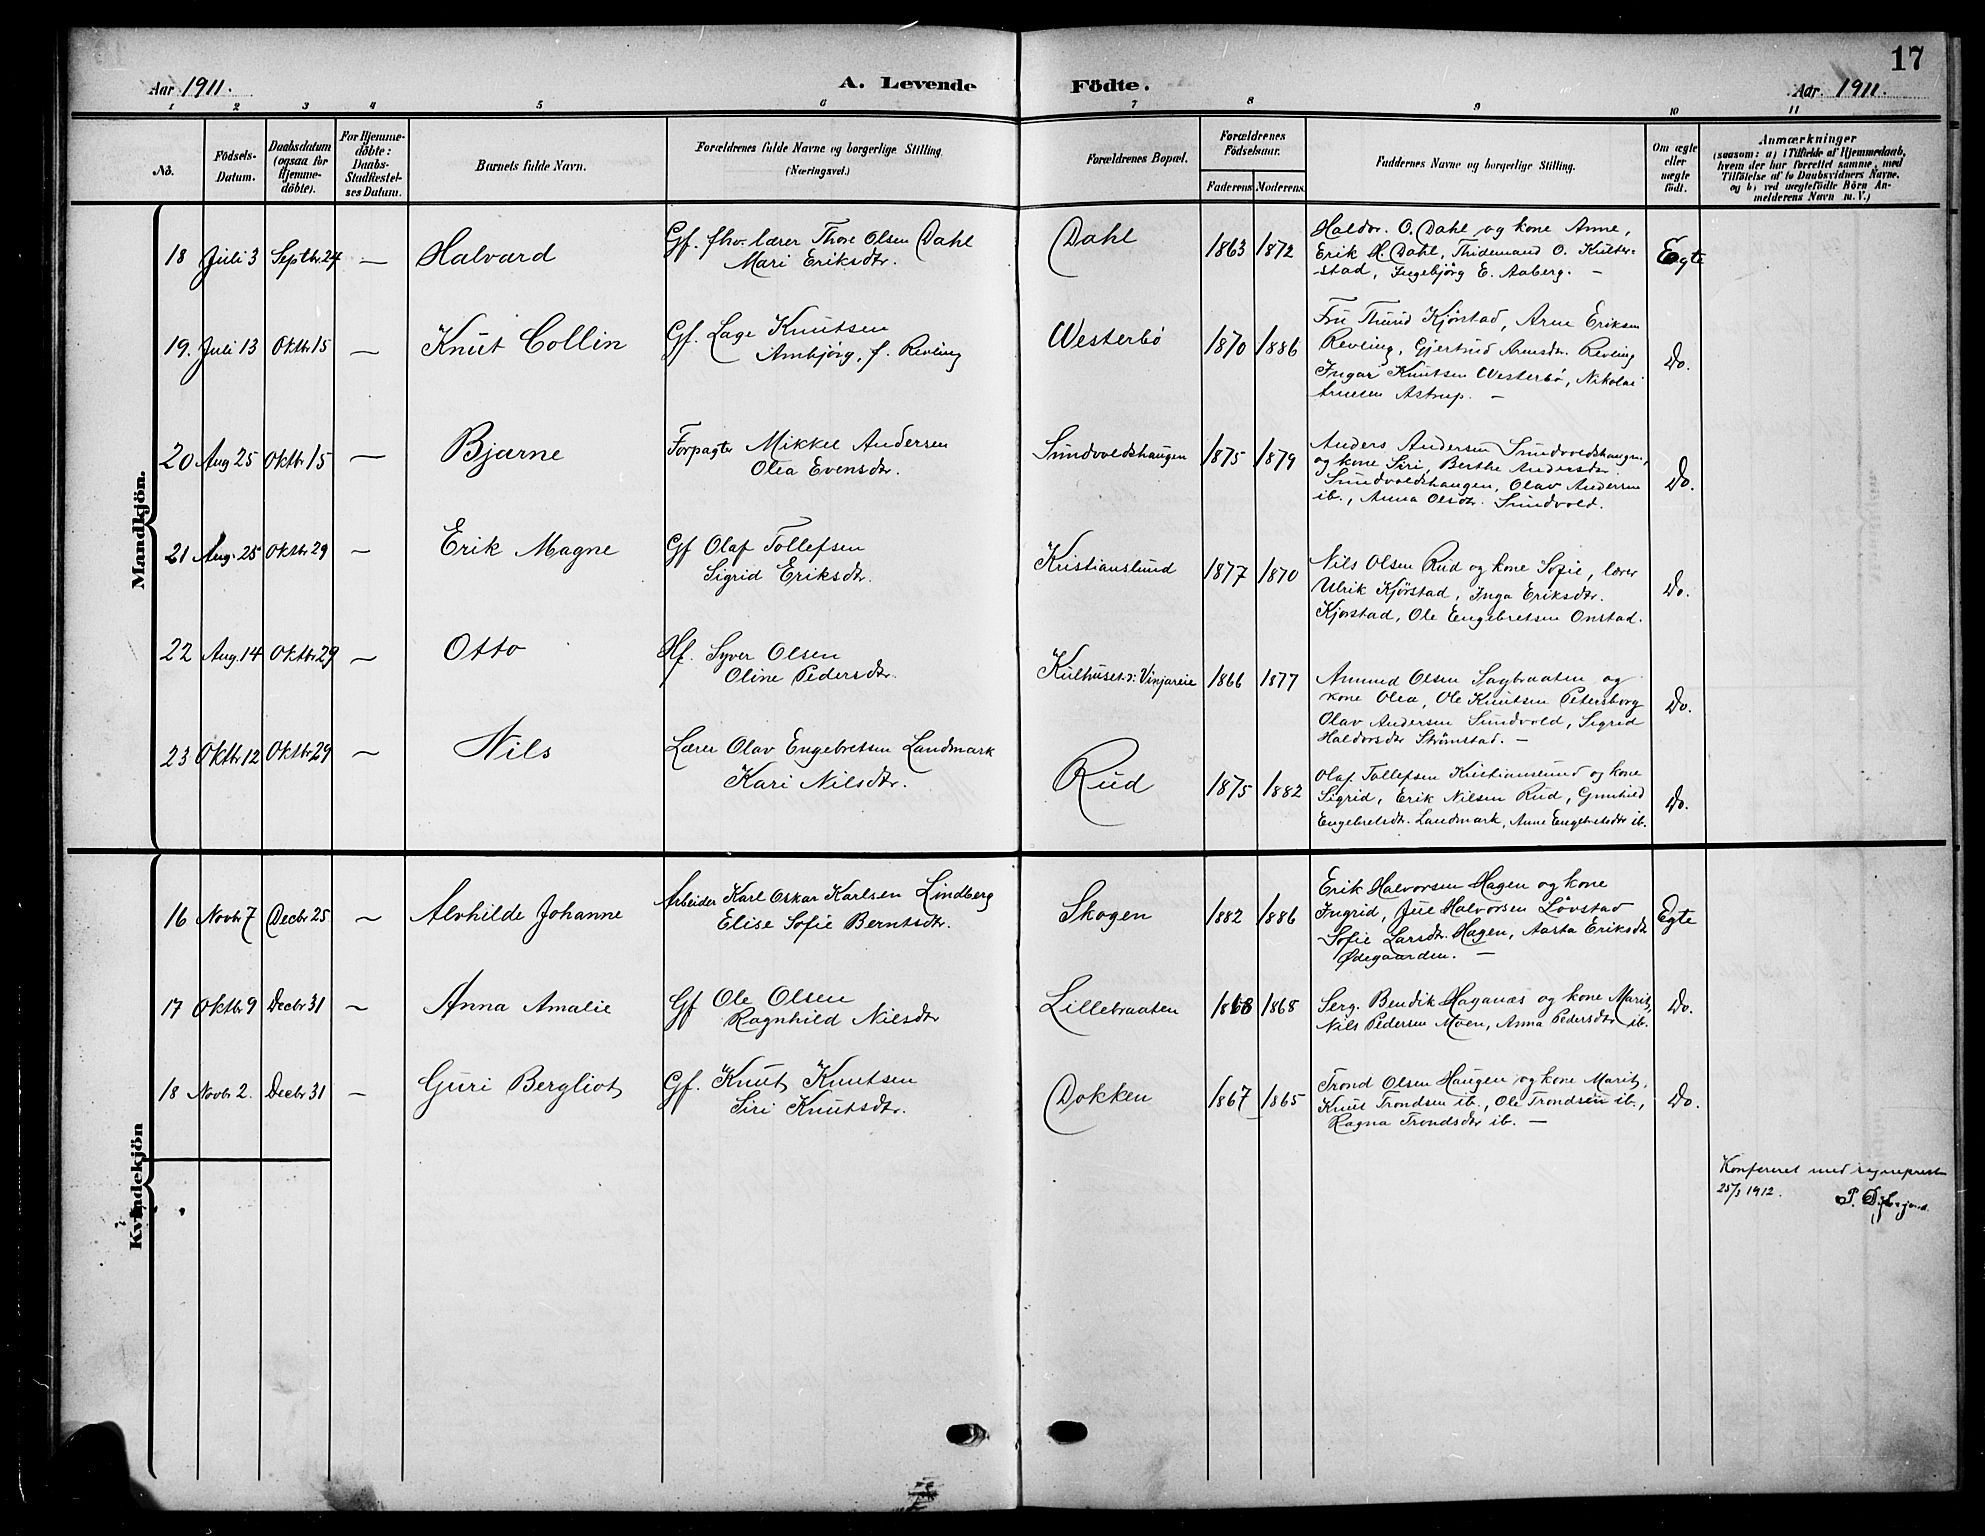 17
Aar 1911.
A. Levende Födte.
Aar 1911.
1 2 3 4 5 6 7 8 9 10 11
No.
Födsels-Datum.
Daabsdatum (ogsaa for Hjemme-döbte).
For Hjemme-döbte: Daabs-Stadfæstel-ses Datum.
Barnets fulde Navn.
Forældrenes fulde Navne og borgerlige Stilling. (Næringsvei.)
Forældrenes Bopæl.
Forældrenes Födselsaar.
Faderens Moderens
Faddernes Navne og borgerlige Stilling.
Om ægte eller uægte födt.
Anmærkninger
(saasom: a) i Tilfælde af Hjemmedaab, hvem der har forrettet samme, med Tilföielse af to Daabsvidners Navne. og b) ved uægtefödte Börn An-melderens Navn m. V.)
Mandkjön.
18 Juli 3 Septbr. 24 — Halvard
Gf. fhv. lærer Thore Olsen Dahl
Mari Eriksdtr.
Dahl 1863 1872
Haldor. O. Dahl og kone Anne,
Erik H. Dahl, Thidemand O. Kulter-
stad, Ingebjörg E. Aaberg. —
Egte
19. Juli 13 Oktbr 15 — Knut Collin
Gf. Lage Knutsen
Ambjörg, f. Revling
Westerbö 1870 1886
Fru Thurid Kjörstad, Arne Eriksen
Revling, Gjertrud Arnesdtr. Revling
Ingar Knutsen Westerbö, Nikolai
Arnesen Astrup. —
Do.
20 Aug 25 Oktbr 15 — Bjarne
Forpagter Mikkel Andersen
Olea Evensdtr.
Sundvoldshaugen 1875 1879
Anders Andersen Sundvoldshaugen,
og kone Siri, Berthe Andersdtr
Sundvoldshaugen, Olav Andersen
ib., Anna Olsdtr. Sundvold.
Do.
21 Aug. 25 Oktbr 29 — Erik Magne
Gf Olaf Tollefsen
Sigrid Eriksdtr.
Kristianslund 1877 1870
Nils Olsen Rud og kone Sofie, lærer
Ulrik Kjörstad, Inga Eriksdtr.
Kjörstad, Ole Engebretsen Onstad.
Do.
22 Aug. 14 Oktbr 29 — Otto
Hf. Syver Olsen
Oline Pedersdtr.
Kulhuset v: Vinjareie 1866 1877
Amund Olsen Sagbraaten og
kone Olea, Ole Knutsen Petersborg
Olav Andersen Sundvold, Sigrid
Haldorsdtr Strömstad. —
Do.
23 Oktbr 12 Oktbr 29 — Nils
Lærer Olav Engebretsen Landmark
Kari Nilsdtr.
Rud 1875 1882
Olaf Tollefsen Kristianslund og kone
Sigrid, Erik Nilsen Rud, Gunhild
Engebretsdtr. Landmark, Anne Engebretsdtr ib.
Do.
Kvindekjön
16 Novbr 7 Decbr 25 — Alvhilde Johanne
Arbeider Karl Oskar Karlsen Lindberg
Elise Sofie Berntsdtr.
Skogen 1882 1886
Erik Halvorsen Hagen og kone
Ingrid, Jul Halvorsen Lövstad
Sofie Larsdtr. Hagen, Aasta Eriksdtr
Ødegaarden. —
Egte
17 Oktbr 9 Decbr 31 — Anna Amalie
Gf Ole Olsen
Ragnhild Nilsdtr
Lillebraaten 1868 1868
Serg. Bendik Haganæs og kone Marit,
Nils Pedersen Moen, Anna Pedersdtr ib.
Do.
18 Novbr 2. Decbr 31 — Guri Bergliot
Gf. Knut Knutsen
Siri Knutsdtr.
Dokken 1867 1865
Trond Olsen Haugen og kone Marit,
Knut Trondsen ib., Ole Trondsen ib.,
Ragna Trondsdtr ib. —
Do.
Konfereret med sogneprest
25/3 1912.